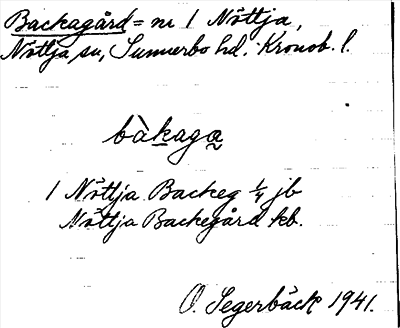 Backagård = nr 1 Nöttja,
Nöttja sn, Sunnerbo hd. Kronob. l.
bàkaga̰
1 Nöttja Backeg 1/4 jb
Nöttja Backegård kb.
O. Segerbäck 1941.